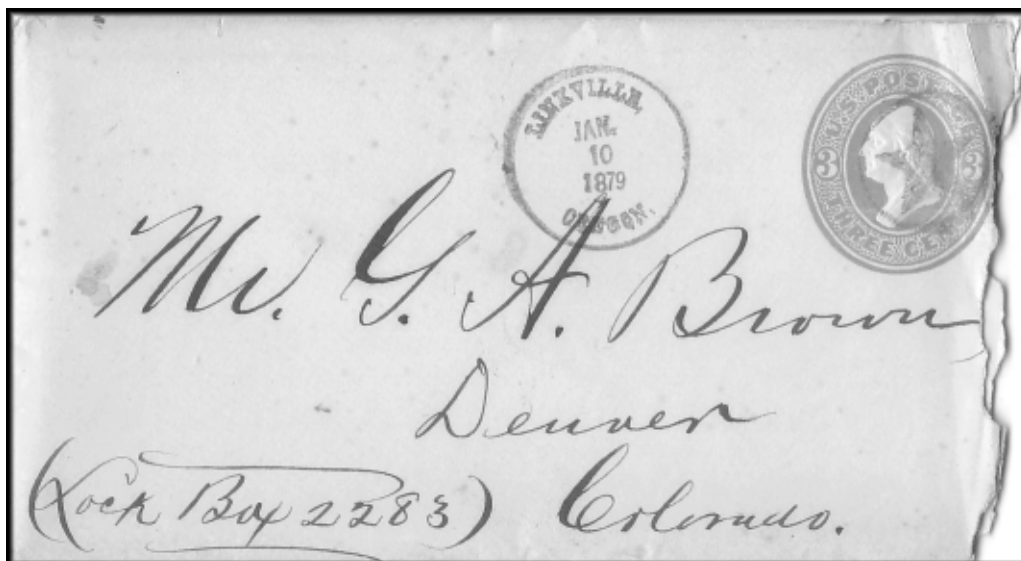 LINKVILLE,
JAN.
10
1879
OREGON.
U.S. POSTAGE
3 3
THREE CENTS
Mr. G. A. Brown
Denver
(Lock Box 2283) Colorado.